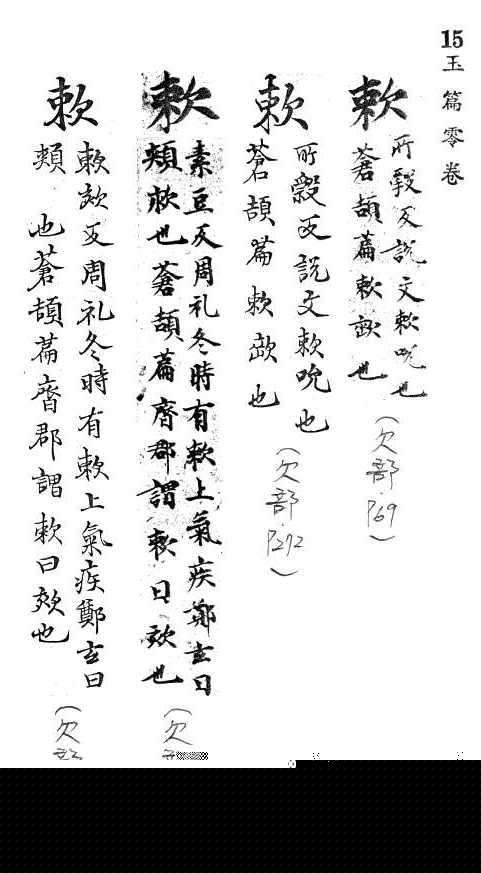 15玉篇零卷
欶
所瑴反說文欶吮也
蒼頡篇欶歃也
(欠部 P69)
欶
所瑴反說文欶吮也
蒼頡篇欶歃也
(欠部 P292)
欶
素豆反周礼冬時有欶上氣疾鄭玄曰
頰欬也蒼頡篇齊郡謂欶曰欬也
(欠
欶
欶欬反周礼冬時有欶上氣疾鄭玄曰
頰 也蒼頡篇齊郡謂欶曰欬也
(欠